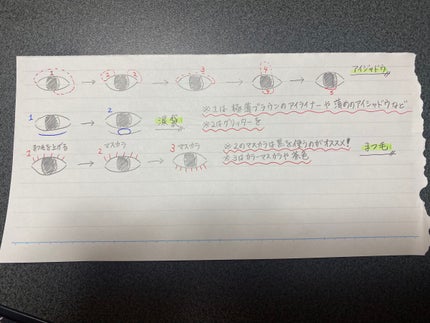 1 2 2 3 3 4 5 アイシャドウ
1 2 涙袋 ※1は極薄ブラウンのアイライナーや薄めのアイシャドウなど
※2はグリッターを
1 まつ毛を上げる 2 マスカラ 3 マスカラ ※2のマスカラは黒を使うのがオススメ!
※3はカラーマスカラや茶色 まつ毛